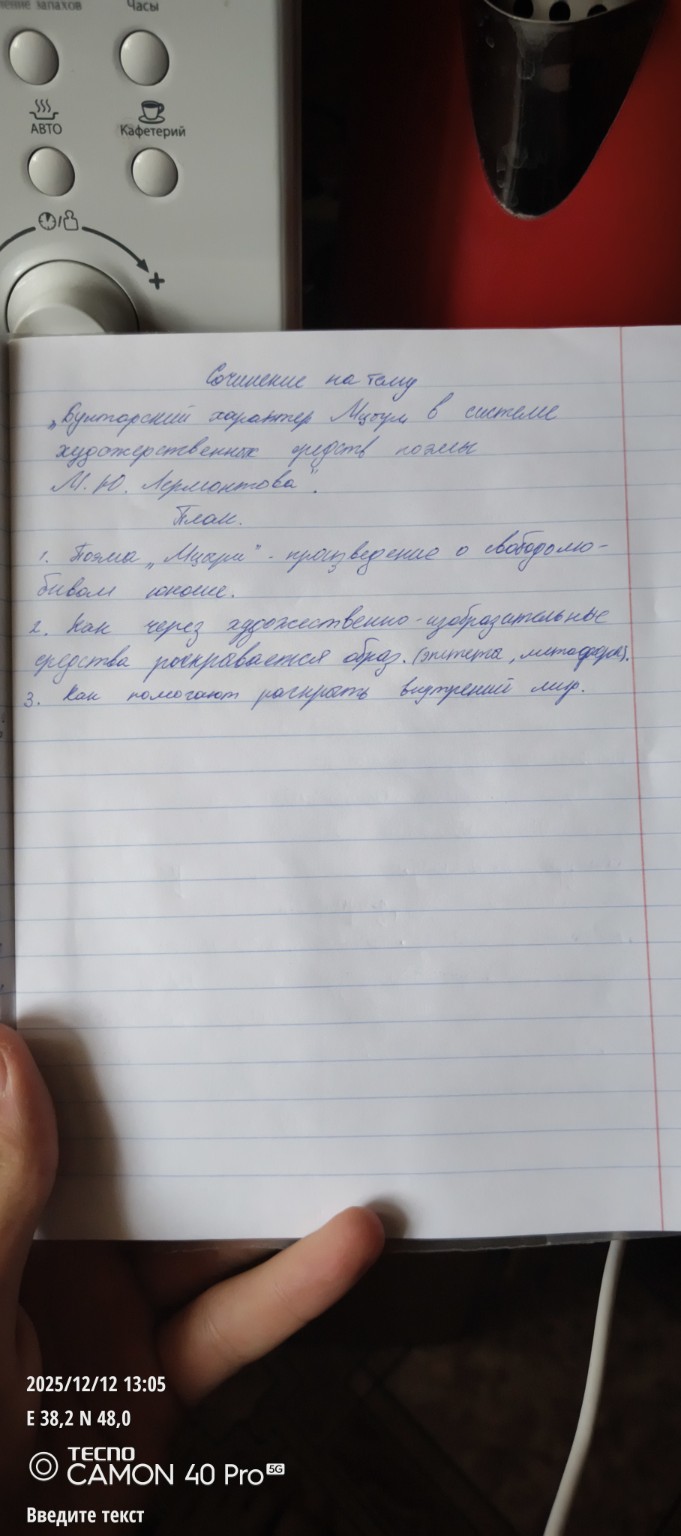 ление запахов
Часы
АВТО
Кафетерий
Сочинение на тему
„Бунтарский характер Мцыри в системе
художерственных средств поэмы
М. Ю. Лермонтова".
План.
1. Поэма „Мцыри" - произведение о свободолю-
бивом юноше.
2. Как через художественно-изобразительные
средства раскравается образ. (эпитета, метафоры).
3. Как помогают раскрать внутрений мир.
2025/12/12 13:05
E 38,2 N 48,0
TECNO
CAMON 40 Pro 5G
Введите текст